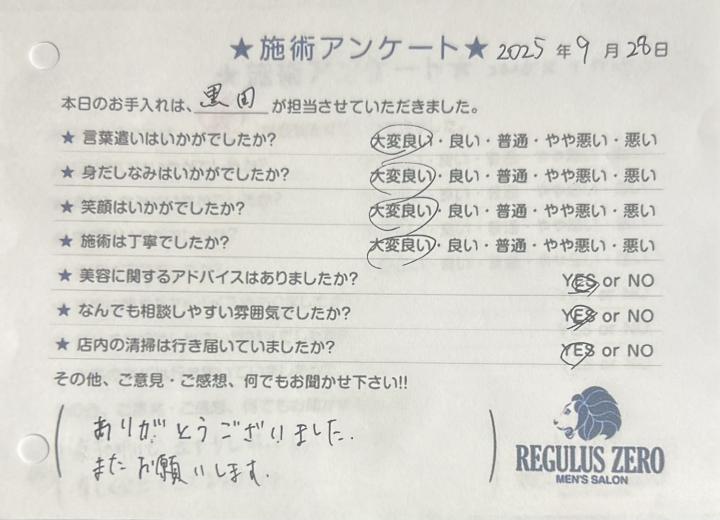 ★施術アンケート★ 2025年9月28日
本日のお手入れは、黒田が担当させていただきました。
★ 言葉遣いはいかがでしたか? 大変良い・良い・普通・やや悪い・悪い
★ 身だしなみはいかがでしたか? 大変良い・良い・普通・やや悪い・悪い
★ 笑顔はいかがでしたか? 大変良い・良い・普通・やや悪い・悪い
★ 施術は丁寧でしたか? 大変良い・良い・普通・やや悪い・悪い
★ 美容に関するアドバイスはありましたか? YES or NO
★ なんでも相談しやすい雰囲気でしたか? YES or NO
★ 店内の清掃は行き届いていましたか? YES or NO
その他、ご意見・ご感想、何でもお聞かせ下さい!!
ありがとうございました.
またお願いします.
REGULUS ZERO
MEN'S SALON